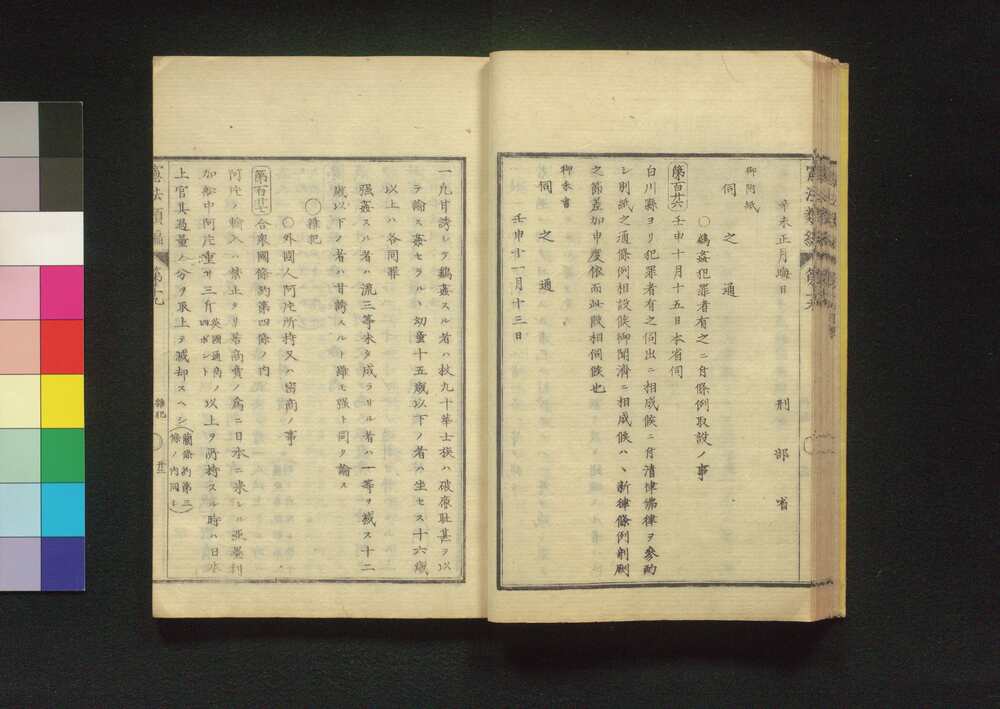 辛未正月晦日　刑部省
御附紙
伺之通
〇鷄姦犯罪者有之ニ付條例取設ノ事
第百廿六 壬申十月十五日本省伺
白川縣ヨリ犯罪者有之伺出ニ相成候ニ付清律佛律ヲ參酌
シ別紙之通條例相設候御聞濟ニ相成候ハヽ新律條例劊刷
之節差加申度依而此段相伺候也
御朱書
伺之通
壬申十一月十三日
一凡甘誘シテ鷄姦スル者ハ杖九十華士族ハ破廉耻甚ヲ以
テ論ス姦セラルヽ幼童十五歳以下ノ者ハ坐セス十六歳
以上ハ各同罪
強姦スル者ハ流三等未タ成ラサル者ハ一等ヲ減ス十二
歳以下ノ者ハ甘誘スルト雖モ强ト同ク論ス
〇雜犯
〇外國人阿片所持又ハ密商ノ事
第百廿七 合衆國條約第四條ノ内
阿片ノ輸入ハ禁止タリ若商賣ノ爲ニ日本ニ來レル亞墨利
加船中阿片重サ三斤英國通角ノ四ポント以上ヲ所持スル時ハ日本
上官其過量ノ分ヲ取上ケ滅却スヘシ(蘭條約第三條ノ内同シ)
憲法類編 第十九 雜犯 廿三